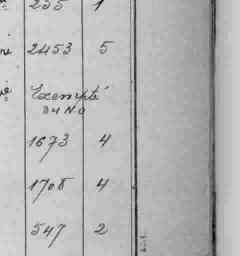 235 1
2453 5
Exempté
du N.o
1673 4
1708 4
547 2